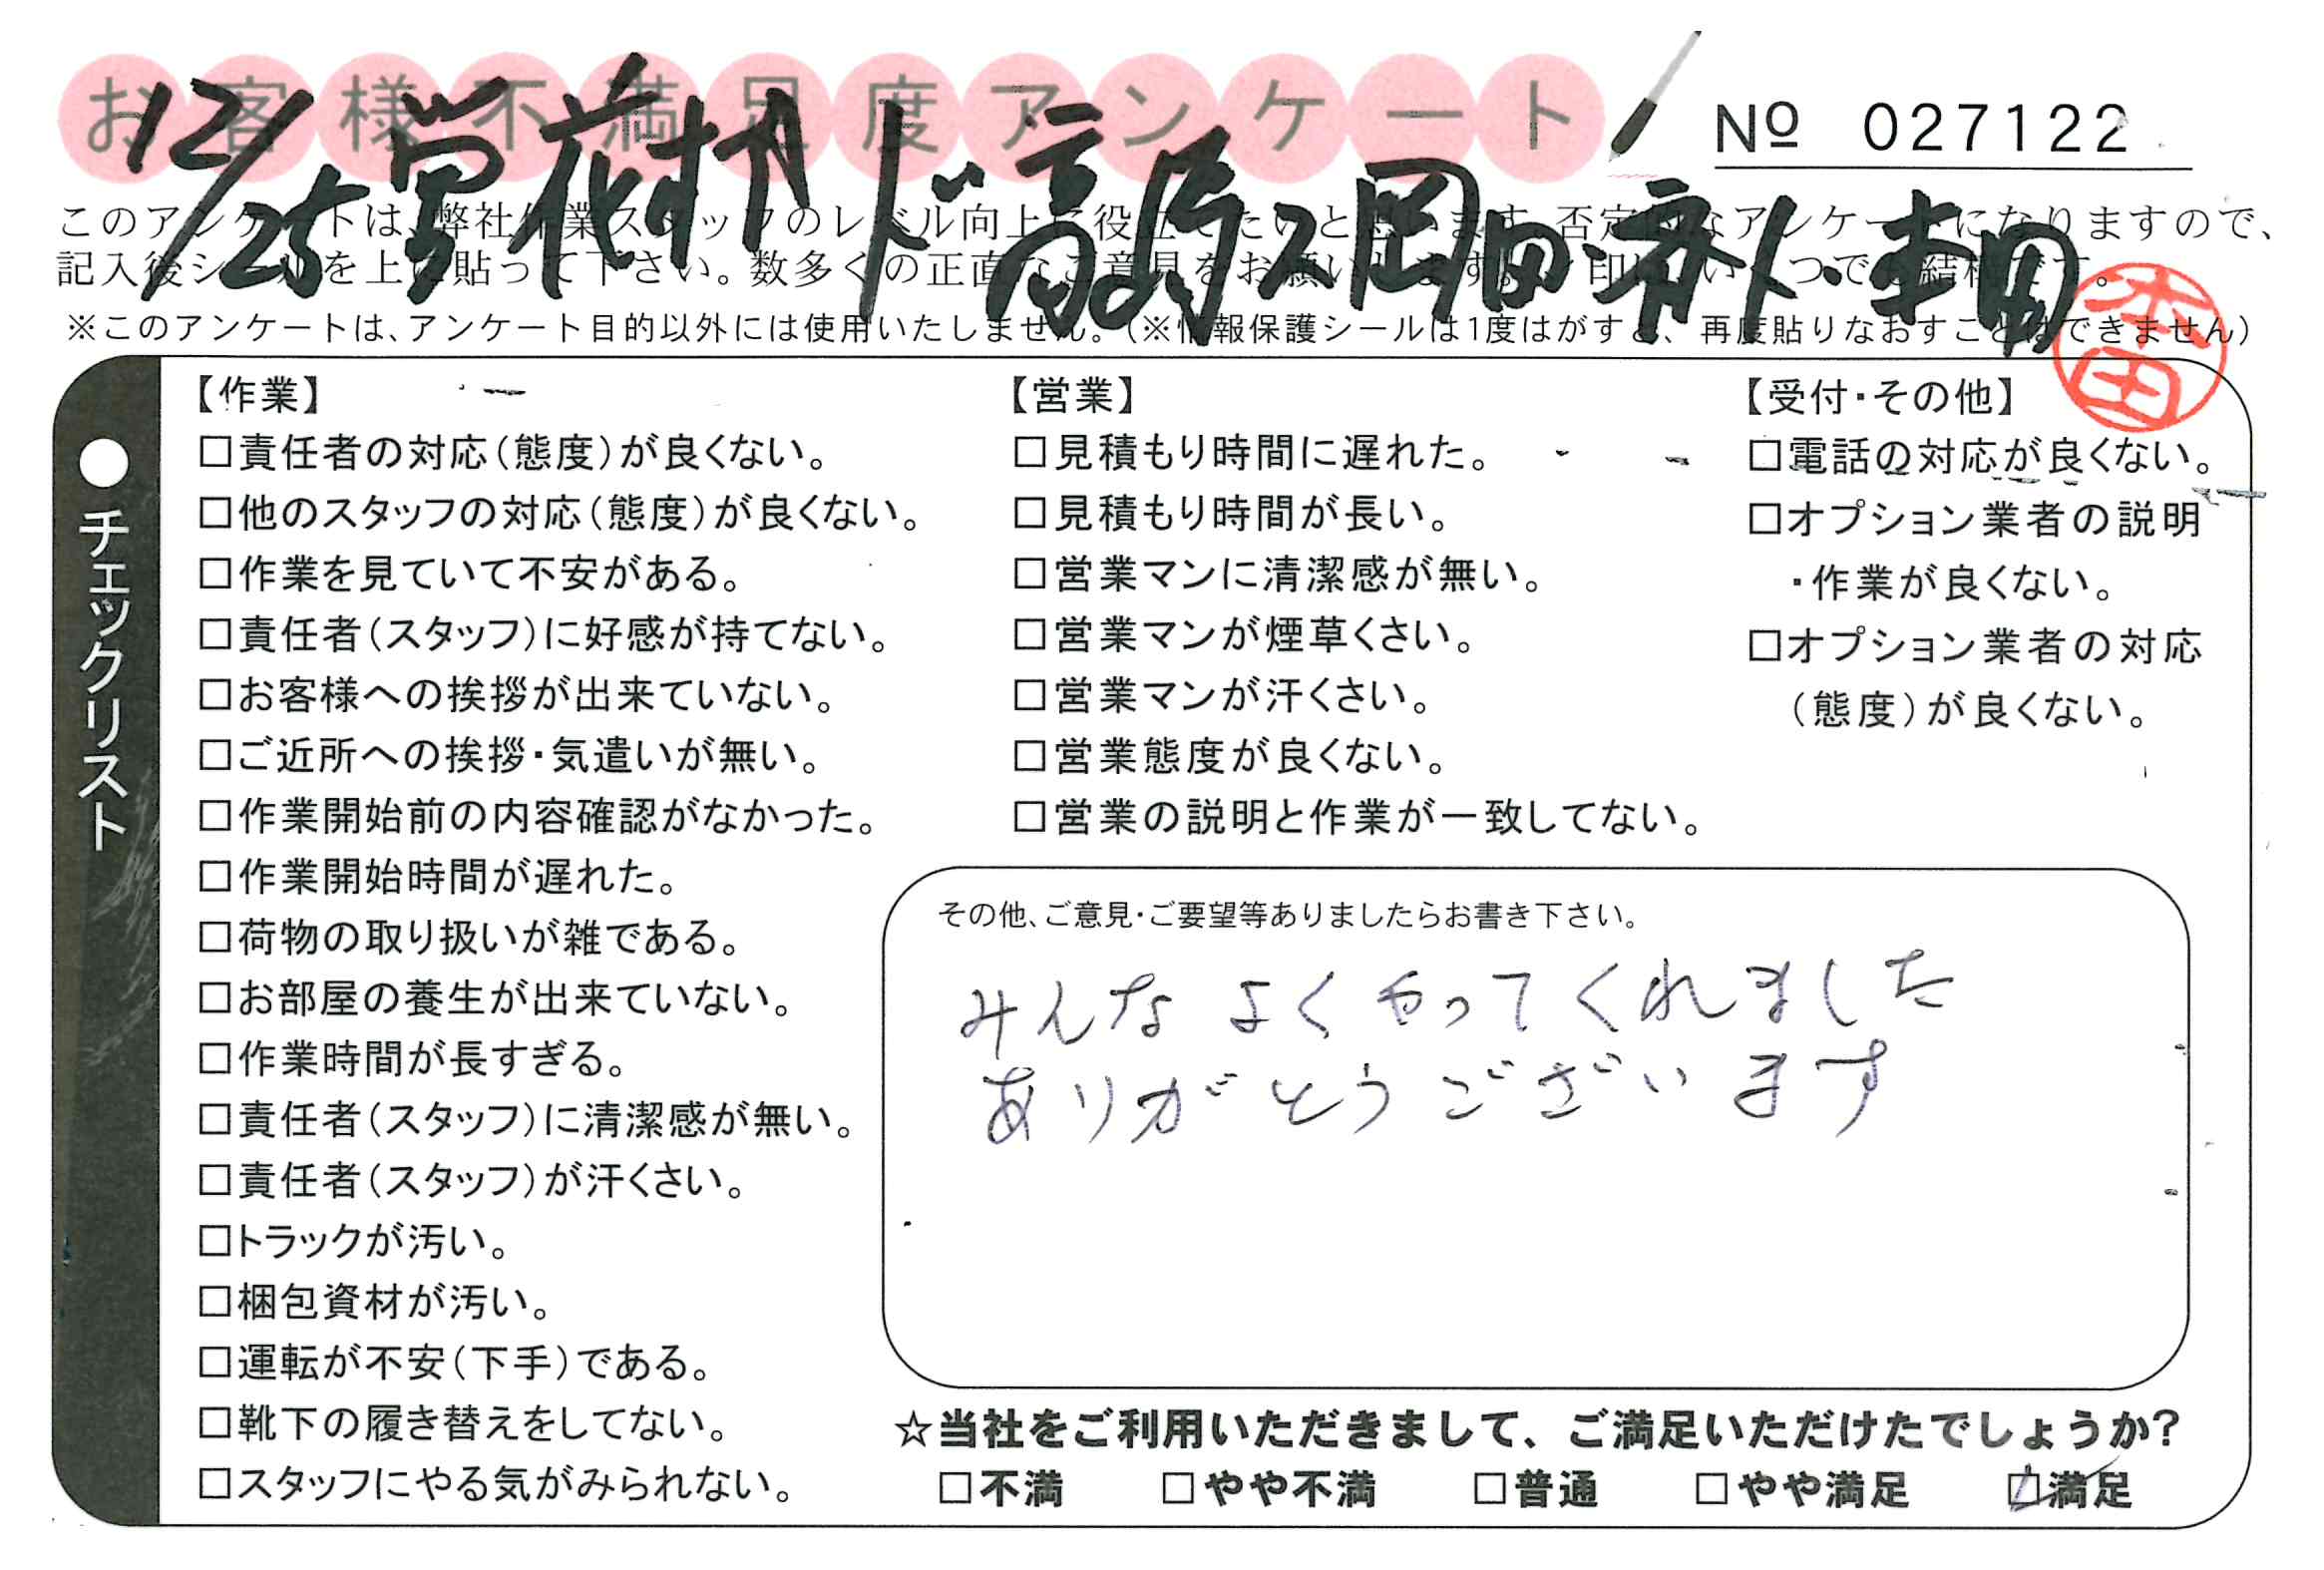 お客様不満足度アンケート
№ 027122
12/25
このアンケートは、弊社作業スタッフのレベル向上に役立てたいと思います。否定的なアンケートになりますので、
記入後シールを上に貼って下さい。数多くの正直なご意見をお願いします。✓印はいくつでも結構です。
※このアンケートは、アンケート目的以外には使用いたしません。(※情報保護シールは1度はがすと、再度貼りなおすことはできません)
本田
●チェックリスト
【作業】
□責任者の対応(態度)が良くない。
□他のスタッフの対応(態度)が良くない。
□作業を見ていて不安がある。
□責任者(スタッフ)に好感が持てない。
□お客様への挨拶が出来ていない。
□ご近所への挨拶・気遣いが無い。
□作業開始前の内容確認がなかった。
□作業開始時間が遅れた。
□荷物の取り扱いが雑である。
□お部屋の養生が出来ていない。
□作業時間が長すぎる。
□責任者(スタッフ)に清潔感が無い。
□責任者(スタッフ)が汗くさい。
□トラックが汚い。
□梱包資材が汚い。
□運転が不安(下手)である。
□靴下の履き替えをしてない。
□スタッフにやる気がみられない。
【営業】
□見積もり時間に遅れた。
□見積もり時間が長い。
□営業マンに清潔感が無い。
□営業マンが煙草くさい。
□営業マンが汗くさい。
□営業態度が良くない。
□営業の説明と作業が一致してない。
【受付・その他】
□電話の対応が良くない。
□オプション業者の説明
・作業が良くない。
□オプション業者の対応
(態度)が良くない。
その他、ご意見・ご要望等ありましたらお書き下さい。
みんなよくやってくれました
ありがとうございます
☆当社をご利用いただきまして、ご満足いただけたでしょうか?
□不満 □やや不満 □普通 □やや満足 ☑満足